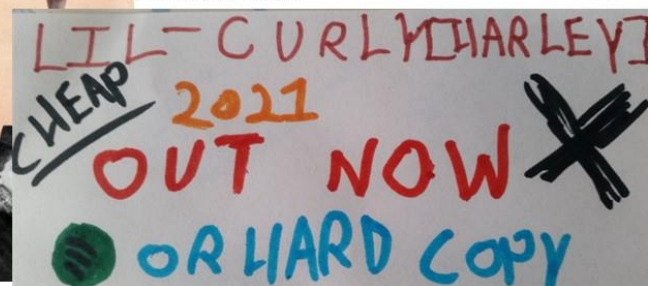 LIL-CURLY[HARLEY]
CHEAP
2021
OUT NOW
OR HARD COPY